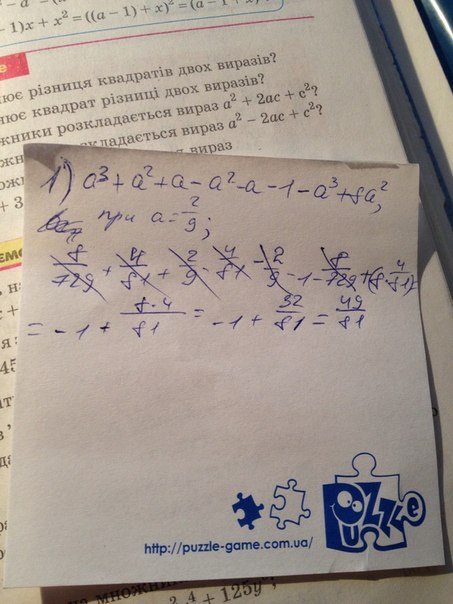 – 1)x + x² = ((a – 1) + x)² = (a – 1 + x)²
нює різниця квадратів двох виразів?
нює квадрат різниці двох виразів?
жники розкладається вираз a² + 2ac + c²?
складається вираз a² – 2ac + c²?
вираз
1) a³ + a² + a – a² – a – 1 – a³ + 8a²,
при a = 2/9;
8/729 + 4/81 + 2/9 - 4/81 - 2/9 - 1 - 8/729 + (8·4/81)
= – 1 + 8·4/81 = – 1 + 32/81 = 49/81
PUZZLE
http://puzzle-game.com.ua/
на множник
+ 125y